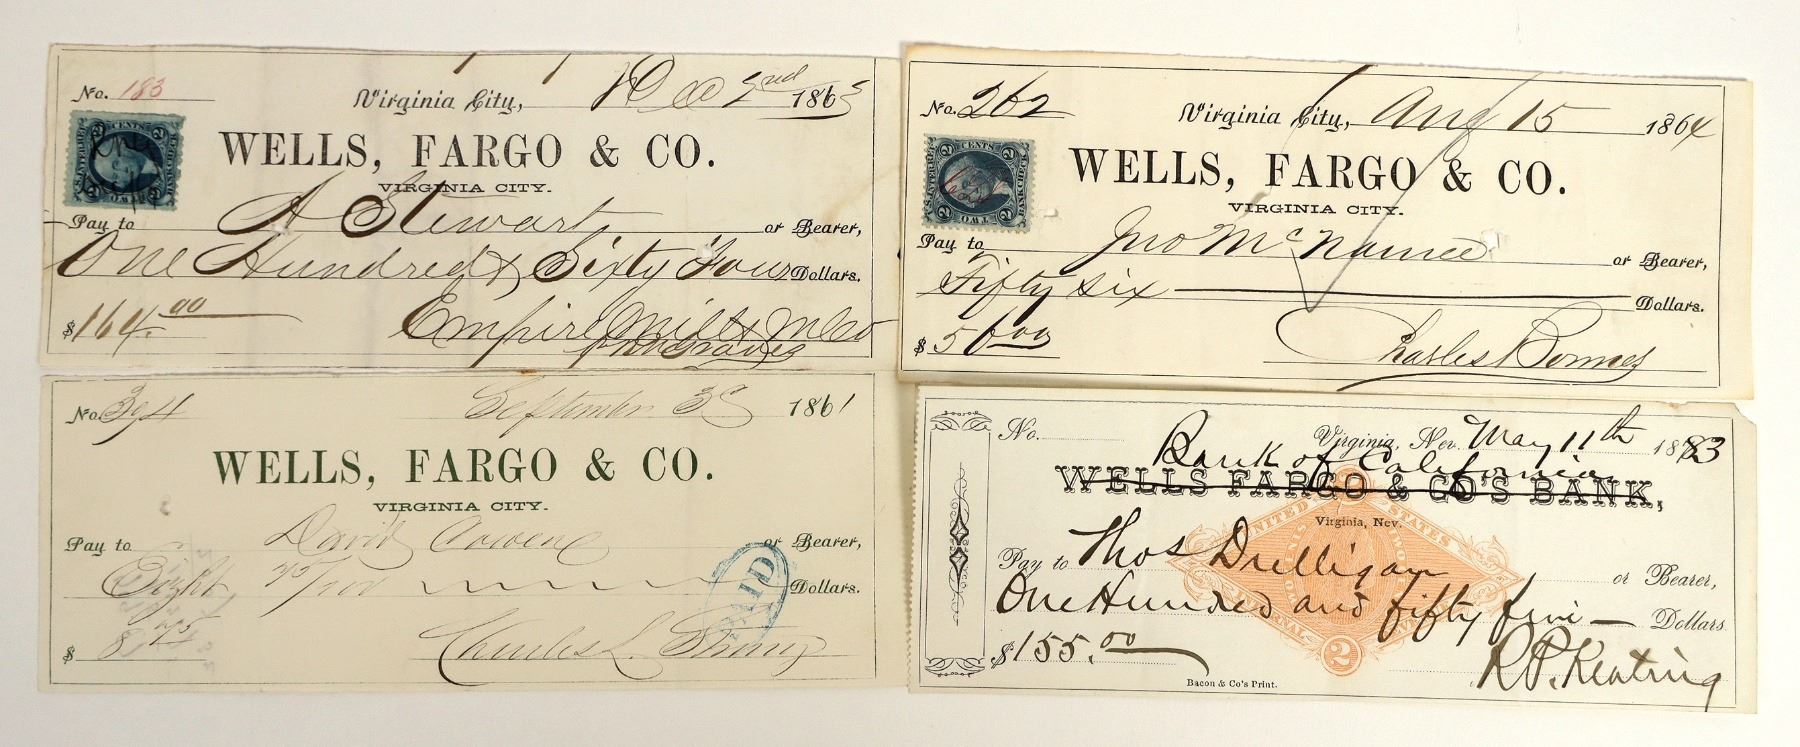 No. 183
Virginia City, Dec 2nd 1863
WELLS, FARGO & CO.
VIRGINIA CITY.
Pay to A Stewart or Bearer,
One Hundred & Sixty Four Dollars.
$164.00
Empire Mill & M Co
U.S. INTER. REV.
2 CENTS 2
BANK CHECK
2 TWO 2
No. 262
Virginia City, Aug 15 1864
WELLS, FARGO & CO.
VIRGINIA CITY.
Pay to Jno McNamee or Bearer,
Fifty six Dollars.
$56.00
Charles Bonner
U.S. INTER. REV.
2 CENTS 2
BANK CHECK
2 TWO 2
No. 394
September 30 1861
WELLS, FARGO & CO.
VIRGINIA CITY.
Pay to David Cowene or Bearer,
Eight 75/100 Dollars.
$8.75
Charles L. Strong
PAID
No.
Virginia, Nev. May 11th 1883
Bank of California
WELLS FARGO & CO'S BANK,
Virginia, Nev.
UNITED STATES
Pay to Thos Drilligan or Bearer,
One Hundred and fifty five — Dollars
$155.00
2
R.P. Keating
Bacon & Co's Print.